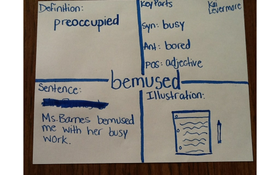 Definition:
preoccupied
Key Parts
Kai
Levermore
Syn: busy
Ant: bored
POS: adjective
bemused
Sentence:
Ms. Barnes bemused
me with her busy
work.
Illustration: